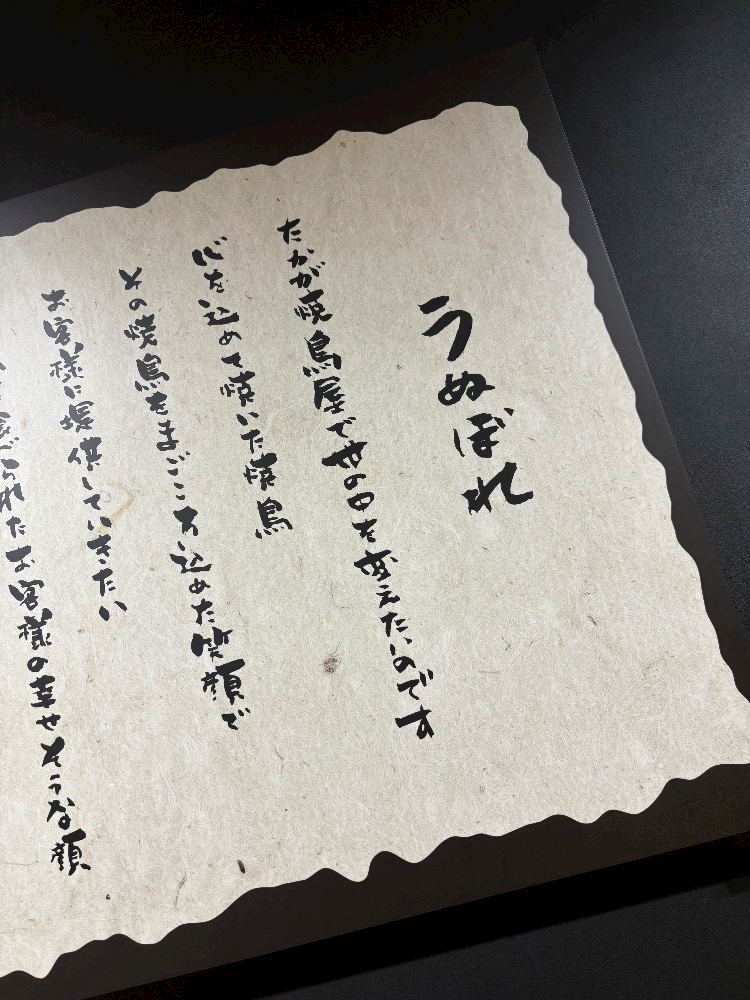 うぬぼれ
たかが焼鳥屋で世の中を変えたいのです
心を込めて焼いた焼鳥
その焼鳥をまごころ込めた笑顔で
お客様に提供していきたい
食べられたお客様の幸せそうな顔